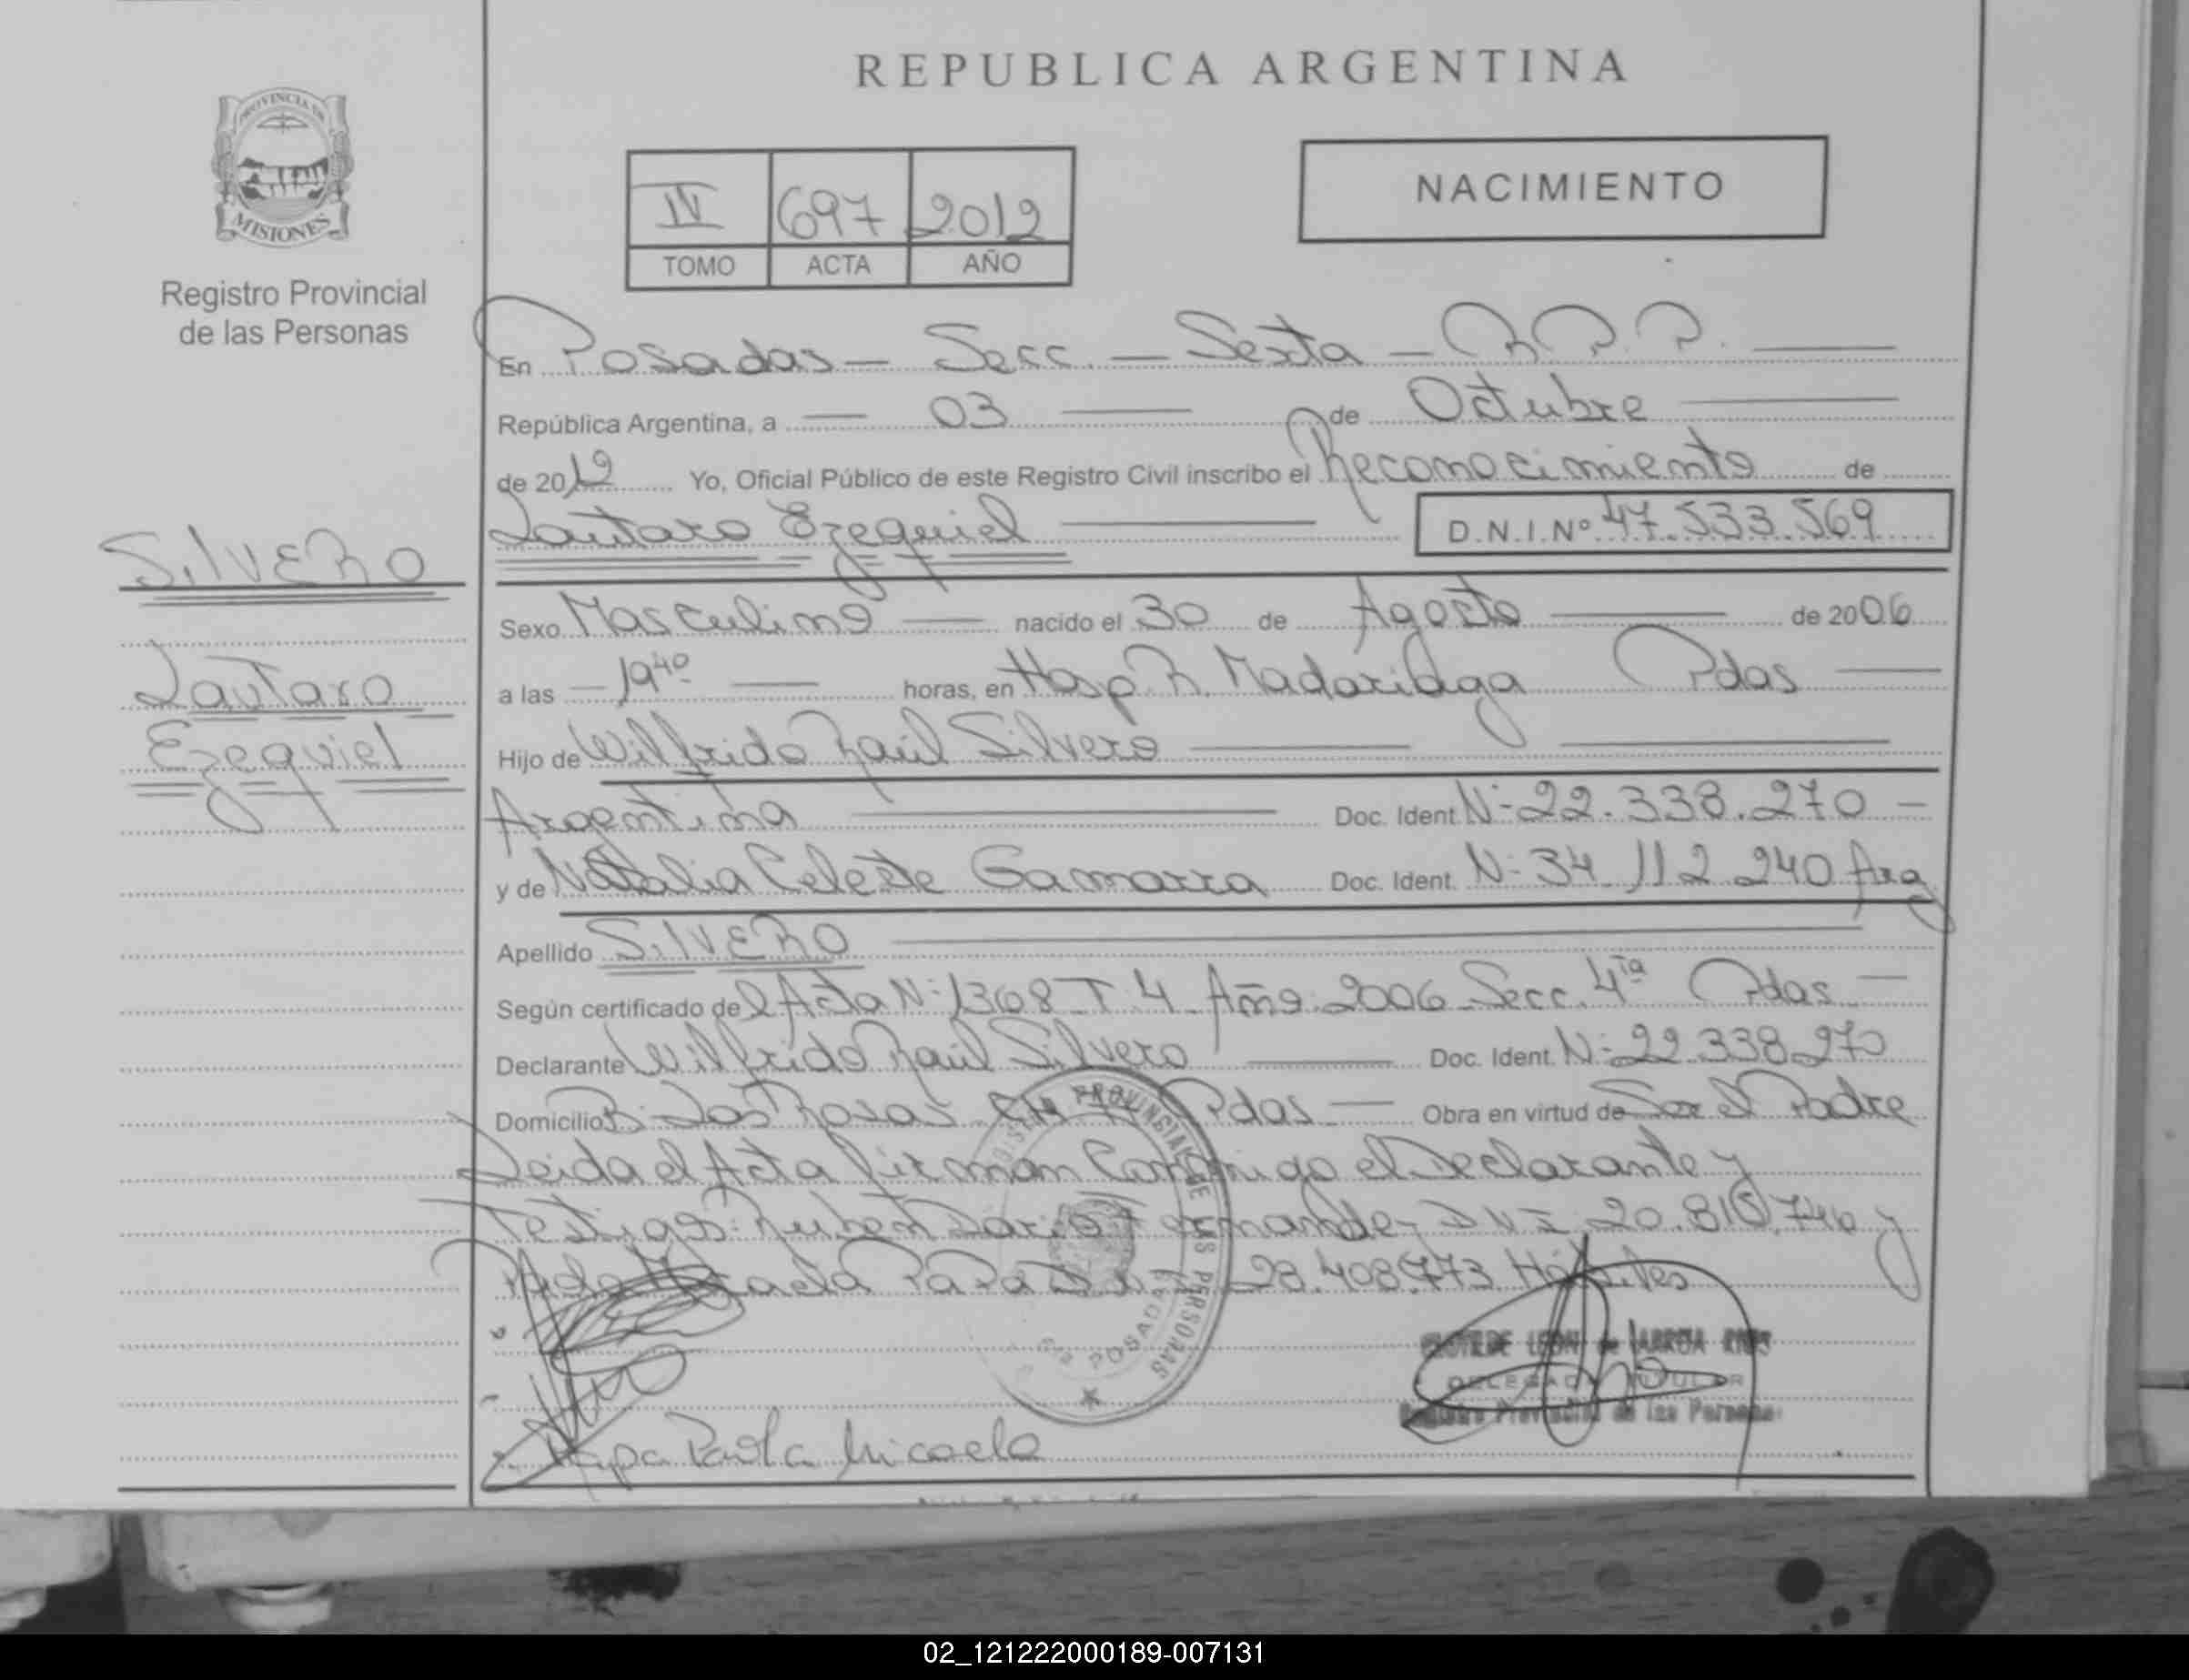 REPUBLICA ARGENTINA
PROVINCIA DE
MISIONES
Registro Provincial
de las Personas
IV 697 2012
TOMO ACTA AÑO
NACIMIENTO
En Posadas – Secc. – Sexta – R.P.P.
República Argentina, a 03 de Octubre
de 2012 Yo, Oficial Público de este Registro Civil inscribo el Reconocimiento de
Lautaro Ezequiel D.N.I.Nº 47.533.569
SILVERO
Lautaro
Ezequiel
Sexo Masculino nacido el 30 de Agosto de 2006
a las 19 40 horas, en Hosp R. Madariaga Pdas
Hijo de Wilfrido Raúl Silvero
Argentina Doc. Ident. Nº 22.338.270
y de Natalia Celeste Gamarra Doc. Ident. Nº 34.112.240 Arg
Apellido SILVERO
Según certificado del Acta Nº 1368 T 4 Año 2006 Secc. 4ta Pdas
Declarante Wilfrido Raúl Silvero Doc. Ident. Nº 22.338.270
Domicilio Bº Las Rosas Pdas Obra en virtud de Ser el Padre
Leida el Acta firman Conmigo el Declarante y
Testigos: Ruben Dario Fernandez DNI 20.816.746 y
Papa DNI 28.408.773 Hábiles
REGISTRO PROVINCIAL DE LAS PERSONAS
POSADAS
CLOTILDE LEON de
DELEGADA TITULAR
Registro Provincial de las Personas
Papa Paola Micaela
02_121222000189-007131